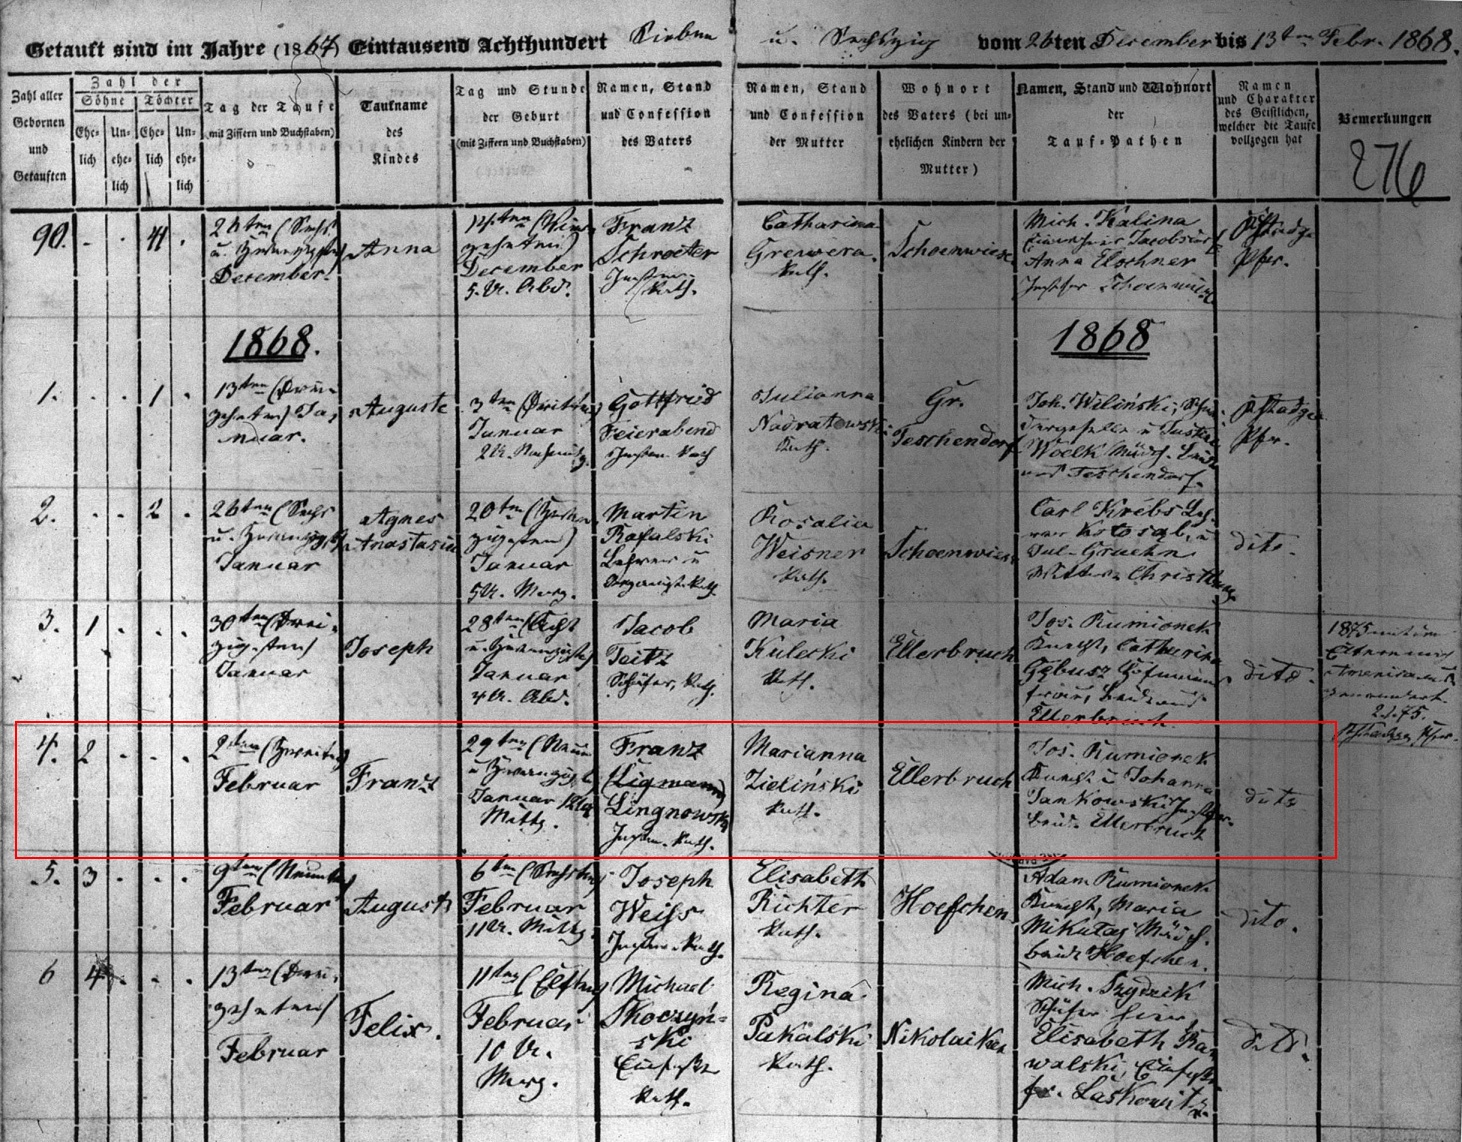 Getauft sind im Jahre (1867) Eintausend Achthundert Sieben u. Sechszig vom 26ten December bis 13ten Febr. 1868.
Zahl aller Gebornen und Getauften
Zahl der
Söhne Töchter
Ehe-lich Un-ehe-lich Ehe-lich Un-ehe-lich
Tag der Taufe
(mit Ziffern und Buchstaben)
Taufname
des
Kindes
Tag und Stunde
der Geburt
(mit Ziffern und Buchstaben)
Namen, Stand
und Confession
des Vaters
Namen, Stand
und Confession
der Mutter
Wohnort
des Vaters (bei un-
ehelichen Kindern der
Mutter)
Namen, Stand und Wohnort
der
Tauf-Pathen
Namen
und Charakter
des Geistlichen,
welcher die Taufe
vollzogen hat
Bemerkungen
276
90. - . 41 .
26ten (Sechs
December.
Anna
14ten (Vier
zehnten)
December
5. U. Abd.
Franz
Schroeter
Kath.
Catharina
Grewera.
Kath.
Schoenwiese
Mich. Kalina
Anna Elschner
Pfr.
1868. 1868
1. . . 1 .
13ten (Drei-
zehnten) Ja-
nuar.
Auguste
3ten (Dritten)
Januar
Gottfried
Feierabend
Kath
Julianna
Nadratowski
Kath.
Gr.
Teschendorf
Joh. Wiliński,
Woelk
Teschendorf.
Pfr.
2. . . 2 .
26ten (Sechs
u. Zwanzigst.)
Januar
Agnes
Anastasia
20ten (Zwan
zigsten)
Januar
5 U. Morg.
Martin
Rafalski
Lehrer u
Organist Kath.
Rosalia
Weisner
Kath.
Schoenwiese
Carl Krebs
Jul. Gruehn
dito.
3. 1 . . .
30ten (Drei-
zigsten)
Januar
Joseph
28ten (Acht
u. Zwanzigsten)
Januar
4 U. Abd.
Jacob
Teitz
Schäfer, Kath.
Maria
Kulecki
Kath.
Ellerbruch
Jos. Rumionek
Knecht, Catharina
Ellerbruch.
dito.
1875 mit den
Eltern nach
Amerika
2.5.75.
4. 2 . . .
2ten (Zweiten)
Februar
Franz
29ten (Neun
u Zwanzigst)
Januar
Mittg.
Franz
(Ligmann)
Lingnowski
Kath.
Marianna
Zieliński
Kath.
Ellerbruch
Jos. Rumionek
Knecht u Johanna
Jankowski
beide Ellerbruch
dito
5. 3 . . .
9ten (Neunten)
Februar
August
6ten (Sechsten)
Februar
11 U. Mittg.
Joseph
Weiss
Kath.
Elisabeth
Richter
Kath.
Hoefchen
Adam Rumionek
Knecht, Maria
beide Hoefchen.
dito.
6 4 . . .
13ten (Drei-
zehnten)
Februar
Felix.
11ten (Elften)
Februar
10 U.
Morg.
Michael
Skoczyń-
ski
Kath.
Regina
Pakalski
Kath.
Nikolaiken
Mich.
Elisabeth
walski,
dito.